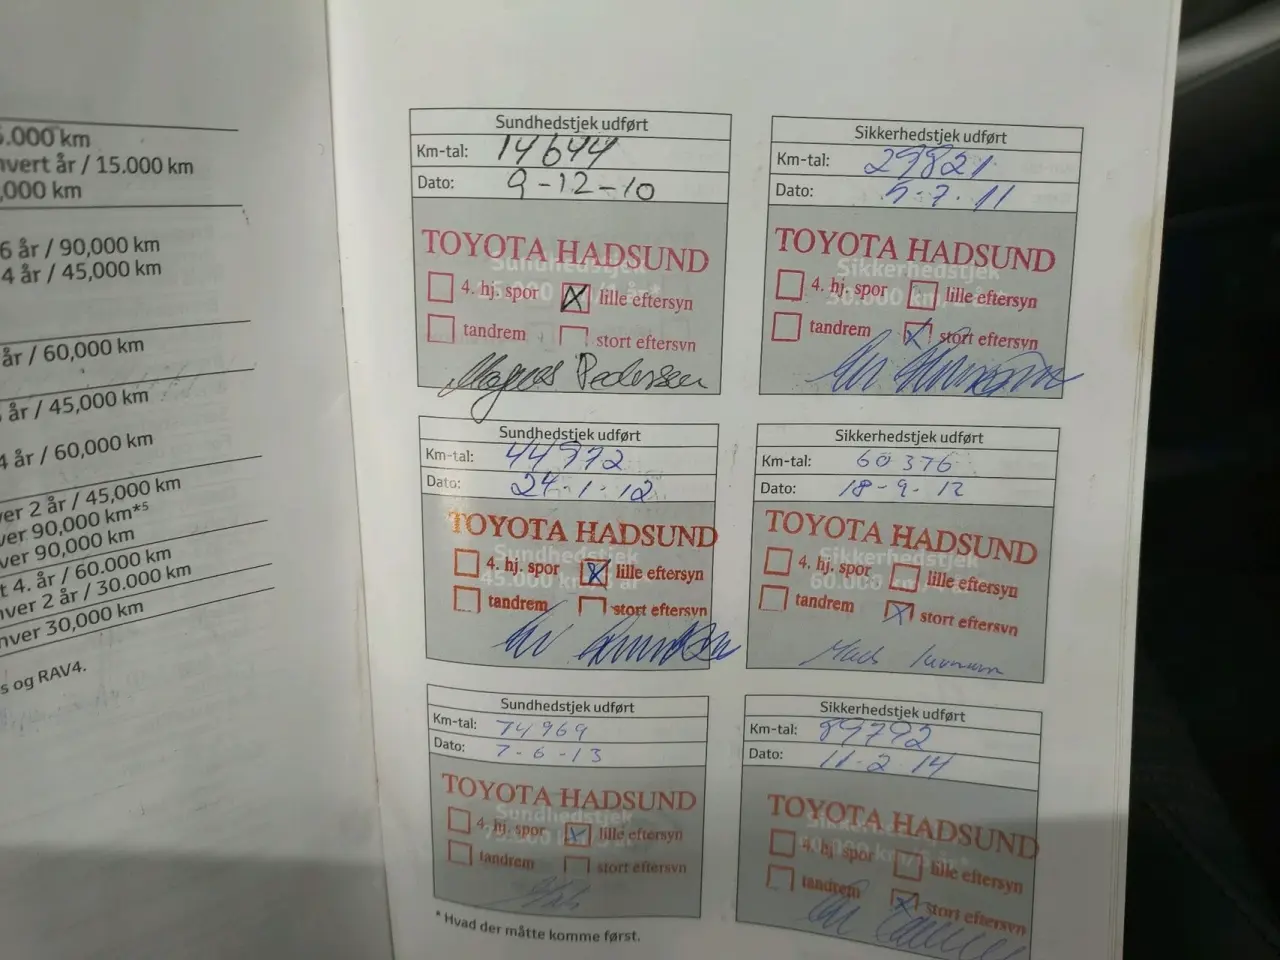 5.000 km
hvert år / 15.000 km
,000 km
6 år / 90,000 km
4 år / 45,000 km
år / 60,000 km
år / 45,000 km
4 år / 60,000 km
ver 2 år / 45,000 km
ver 90,000 km*5
ver 90,000 km
t 4. år / 60.000 km
ver 2 år / 30.000 km
hver 30,000 km
s og RAV4.
Sundhedstjek udført
Km-tal: 14644
Dato: 9-12-10
Sundhedstjek
TOYOTA HADSUND
4. hj. spor lille eftersyn
tandrem stort eftersyn
Magnus Pedersen
Sikkerhedstjek udført
Km-tal: 29821
Dato: 5.7.11
TOYOTA HADSUND
Sikkerhedstjek
30.000 km
4. hj. spor lille eftersyn
tandrem stort eftersyn
Sundhedstjek udført
Km-tal: 44972
Dato: 24.1.12
TOYOTA HADSUND
Sundhedstjek
45.000 km
4. hj. spor lille eftersyn
tandrem stort eftersyn
Sikkerhedstjek udført
Km-tal: 60376
Dato: 18-9-12
TOYOTA HADSUND
Sikkerhedstjek
60.000 km
4. hj. spor lille eftersyn
tandrem stort eftersyn
Sundhedstjek udført
Km-tal: 74969
Dato: 7-6-13
TOYOTA HADSUND
Sundhedstjek
4. hj. spor lille eftersyn
tandrem stort eftersyn
Sikkerhedstjek udført
Km-tal: 89792
Dato: 11.2.14
TOYOTA HADSUND
4. hj. spor lille eftersyn
tandrem stort eftersyn
* Hvad der måtte komme først.